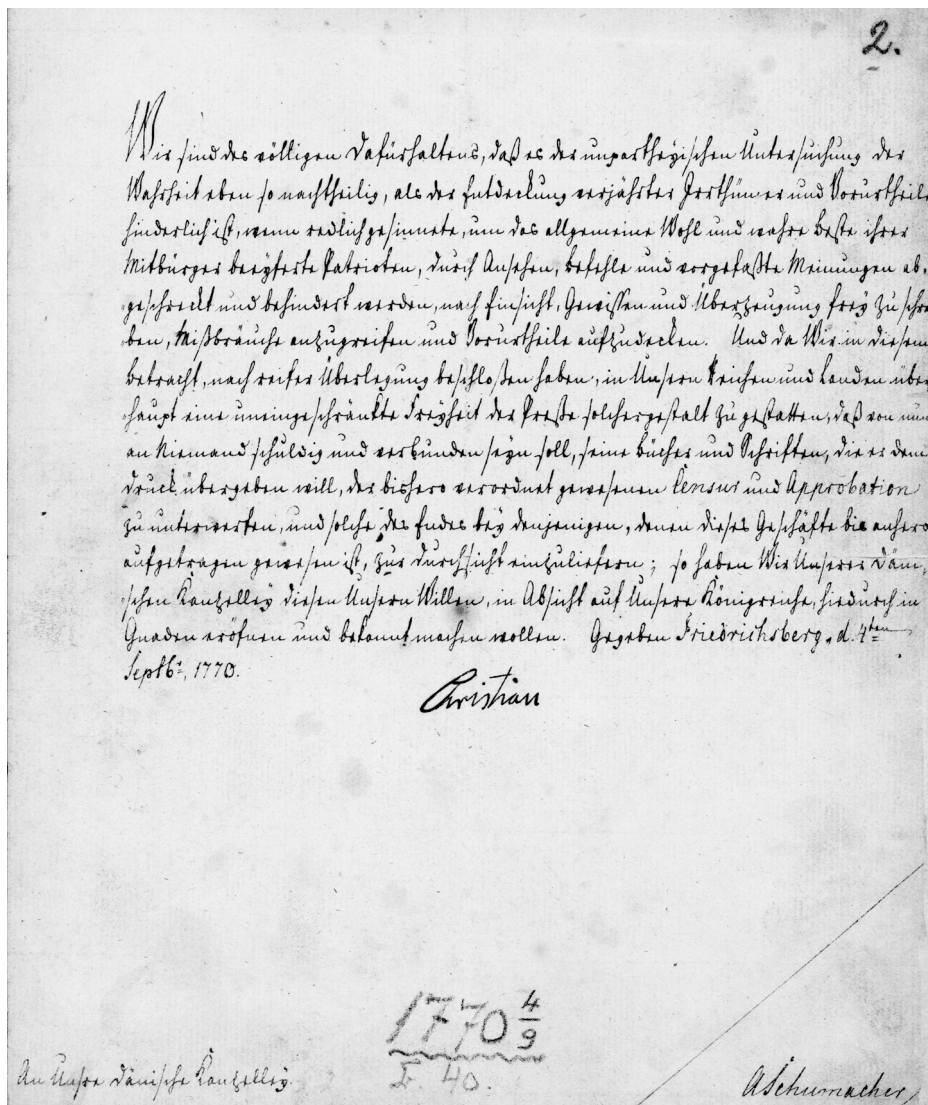 2.
Wir sind des völligen Dafürhaltens, daß es der unpartheyischen Untersuchung der
Wahrheit eben so nachtheilig, als der Entdeckung verjährter Irrthümer und Vorurtheile
hinderlich ist, wenn redlichgesinnete, um das allgemeine Wohl und wahre Beste ihrer
Mitbürger beeyferte Patrioten, durch Ansehen, Befehle und vorgefaßte Meinungen ab-
geschreckt und behindert werden, nach Einsicht, Gewissen und Uberzeugung frey zu schrei
ben, Mißbräuche anzugreifen und Vorurtheile aufzudecken. Und da Wir in diesem
Betracht, nach reifer Überlegung beschloßen haben, in Unsern Reichen und Landen über
haupt eine uneingeschränkte Freyheit der Preße solchergestalt zu gestatten, daß von nun
an Niemand schuldig und verbunden seyn soll, seine Bücher und Schriften, die er dem
Druck übergeben will, der bishero verordnet gewesenen Censur und Approbation
zu unterwerfen, und solche des Endes bey denjenigen, denen dieses Geschäfte bis anhero
aufgetragen gewesen ist, zur Durchsicht einzuliefern; so haben Wir Unserer Däni-
schen Kantzelley diesen Unsern Willen, in Absicht auf Unsere Königreiche, hiedurch in
Gnaden eröfnen und bekannt machen wollen. Gegeben Friedrichsberg, d. 4ten
Septbr, 1770.
Christian
1770 4/9
L. 40.
An Unsre Dänische Kantzelley.
ASchumacher